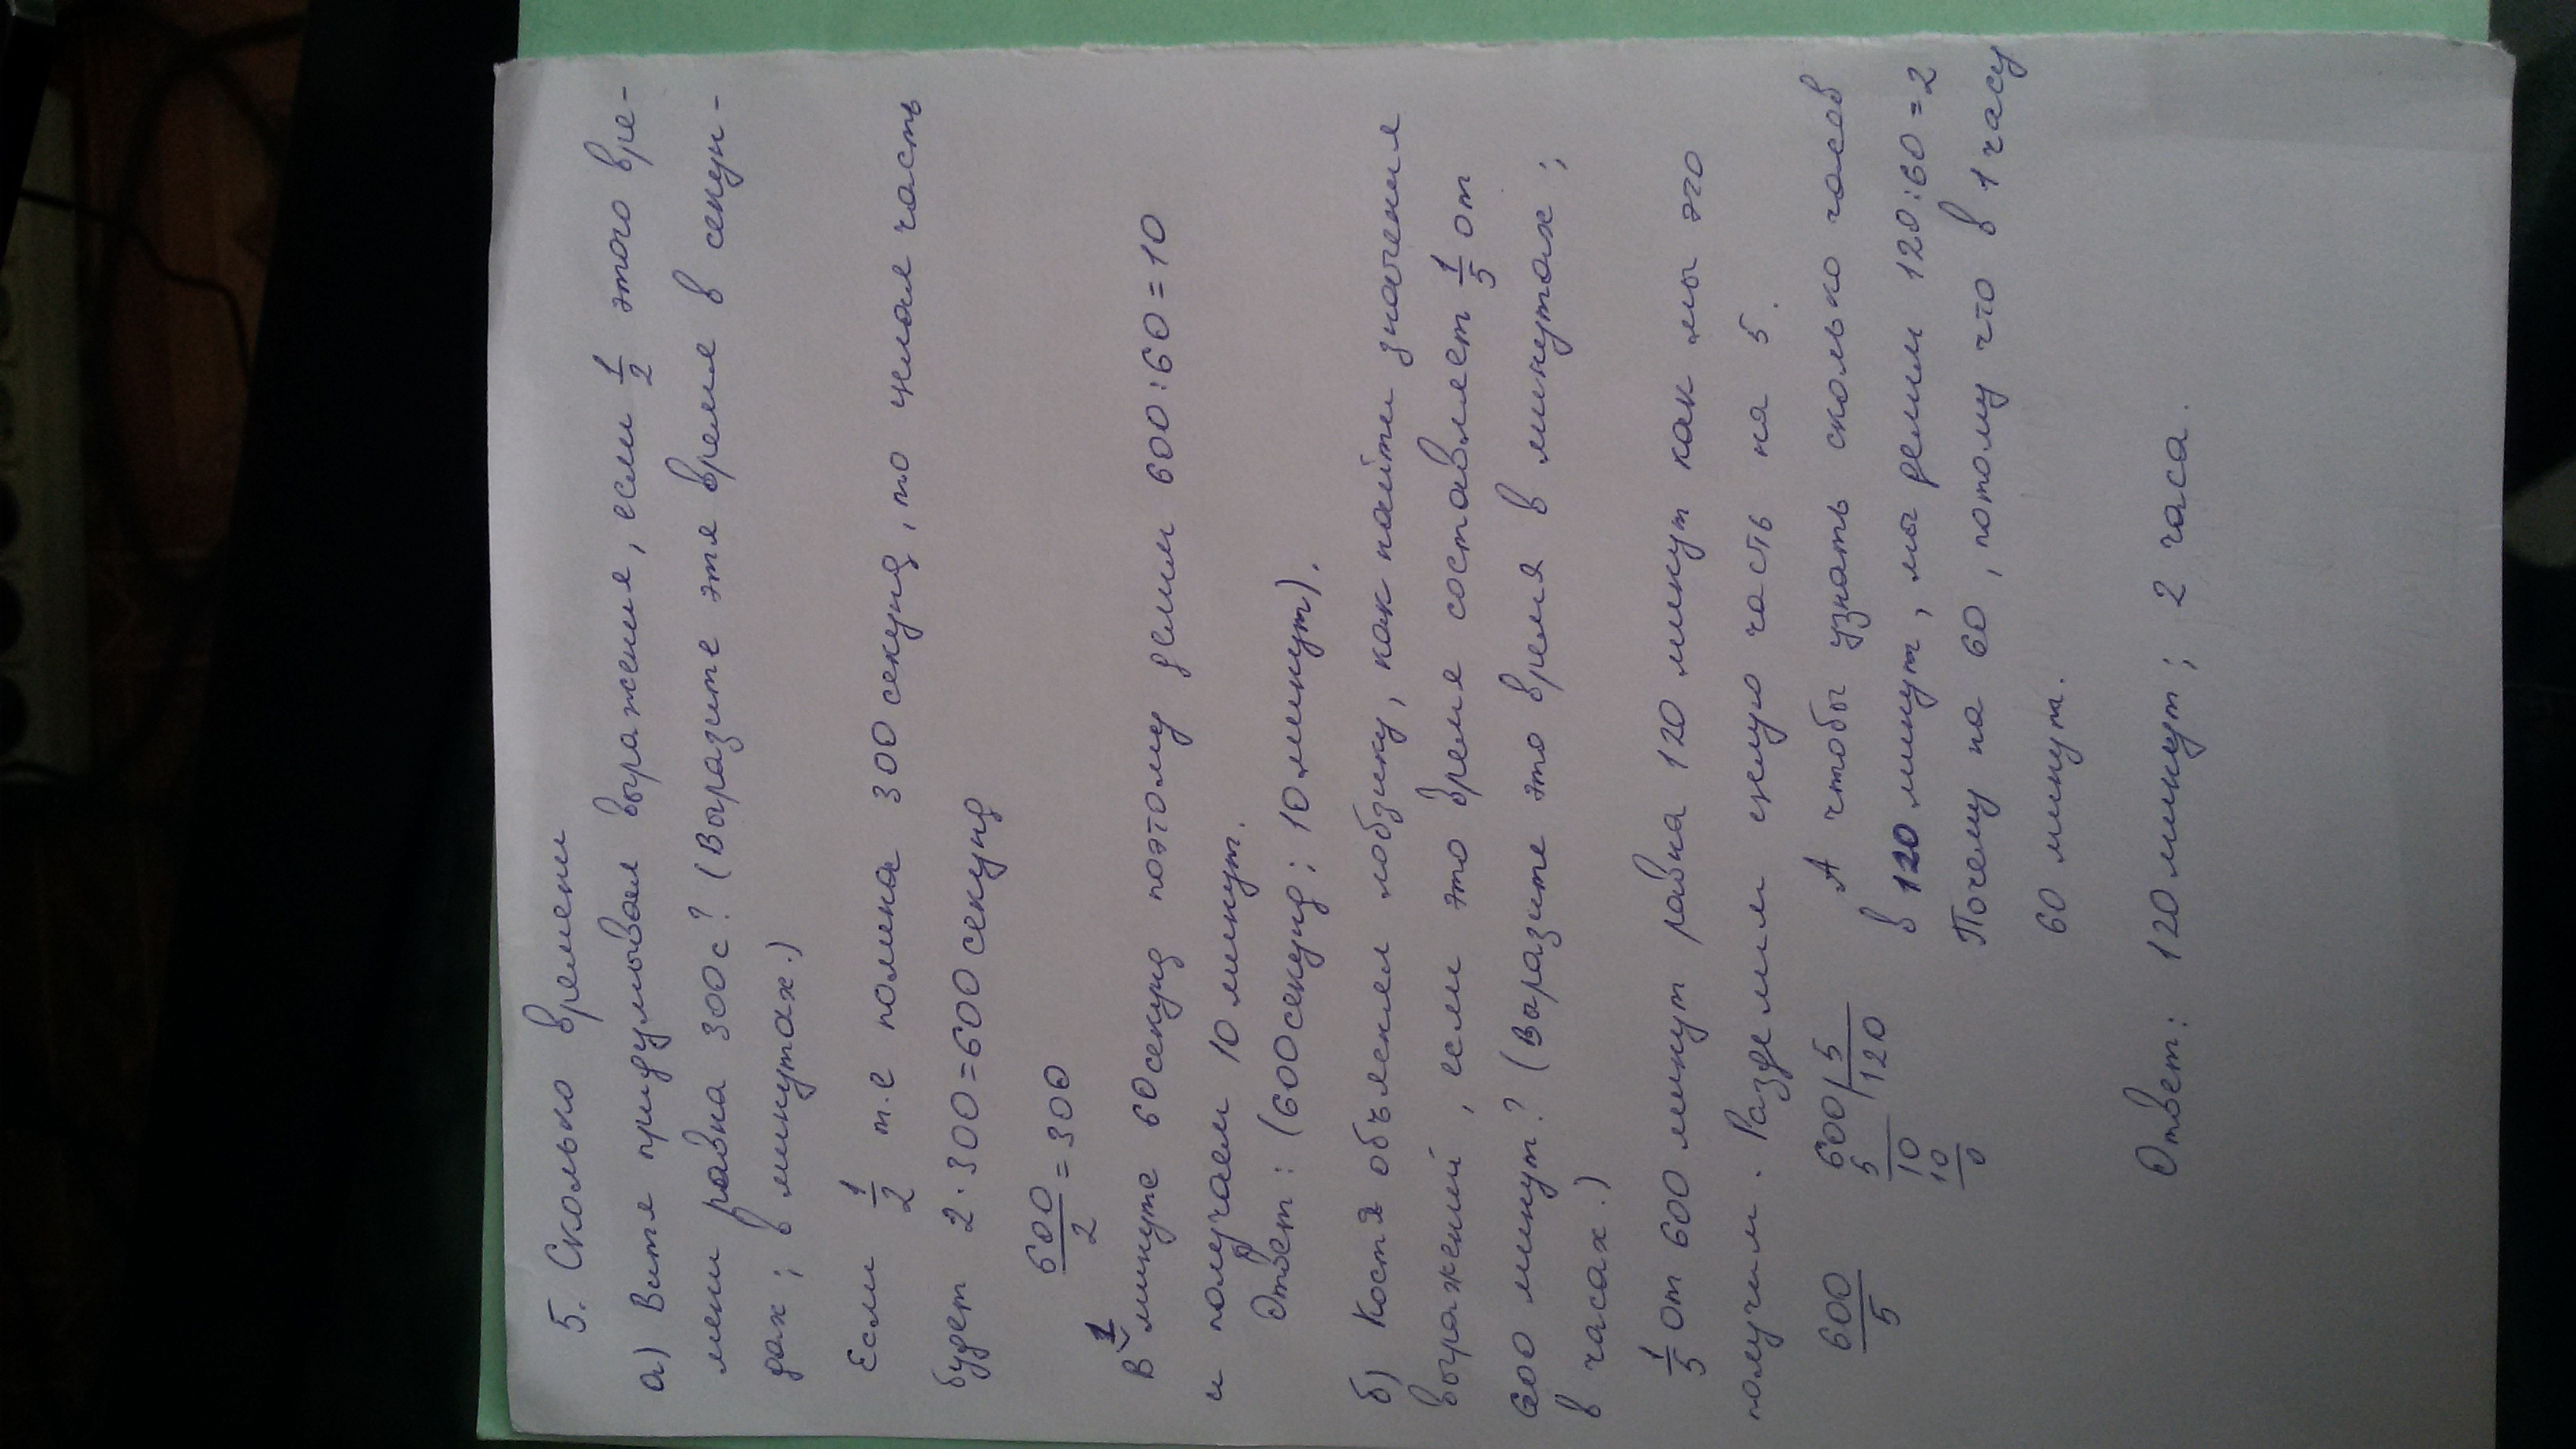 5. Сколько времени
а) Витя придумывал выражения, если 1/2 этого вре-
мени равна 300 с? (Выразите это время в секун-
дах; в минутах.)
Если 1/2 т.е половина 300 секунд, то целая часть
будет 2·300=600 секунд
600/2=300
В 1 минуте 60 секунд поэтому делим 600:60=10
и получаем 10 минут.
Ответ: (600 секунд; 10 минут).
б) Костя объяснял лобзику, как найти значения
выражений, если это время составляет 1/5 от
600 минут? (Выразите это время в минутах;
в часах.)
1/5 от 600 минут равна 120 минут как мы это
получим. Разделим енную часть на 5.
600/5
600 | 5
5 120
10
10
0
А чтобы узнать сколько часов
в 120 минут, мы делим 120:60=2
Почему на 60, потому что в 1 часу
60 минут.
Ответ: 120 минут; 2 часа.